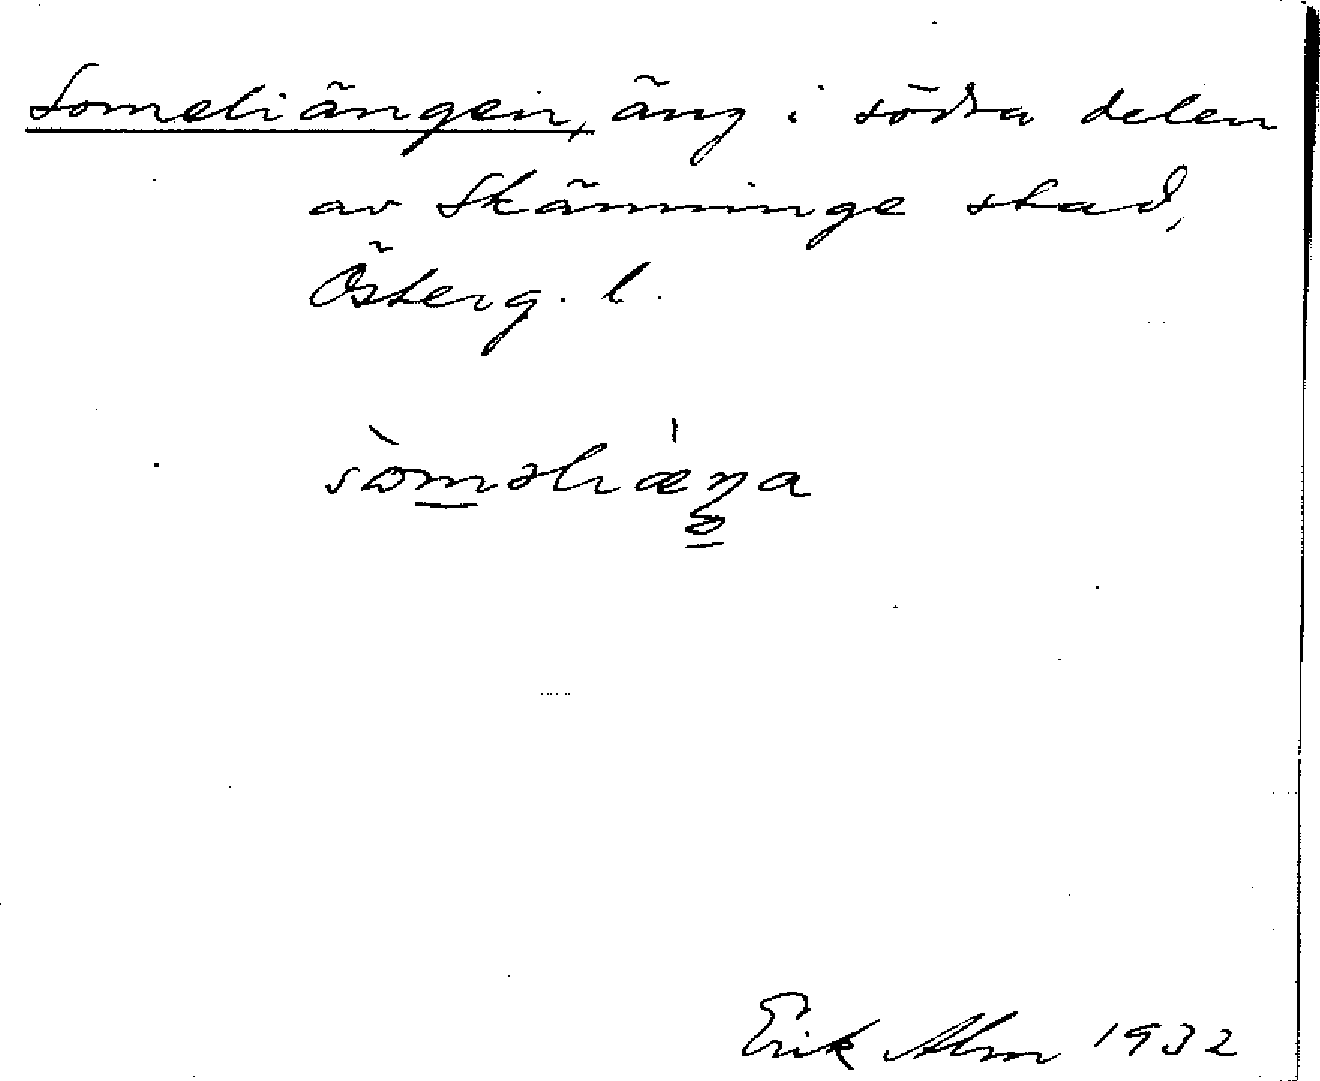 Someliängen, äng i södra delen
av Skänninge stad,
Österg. l.
Erik Alm 1932